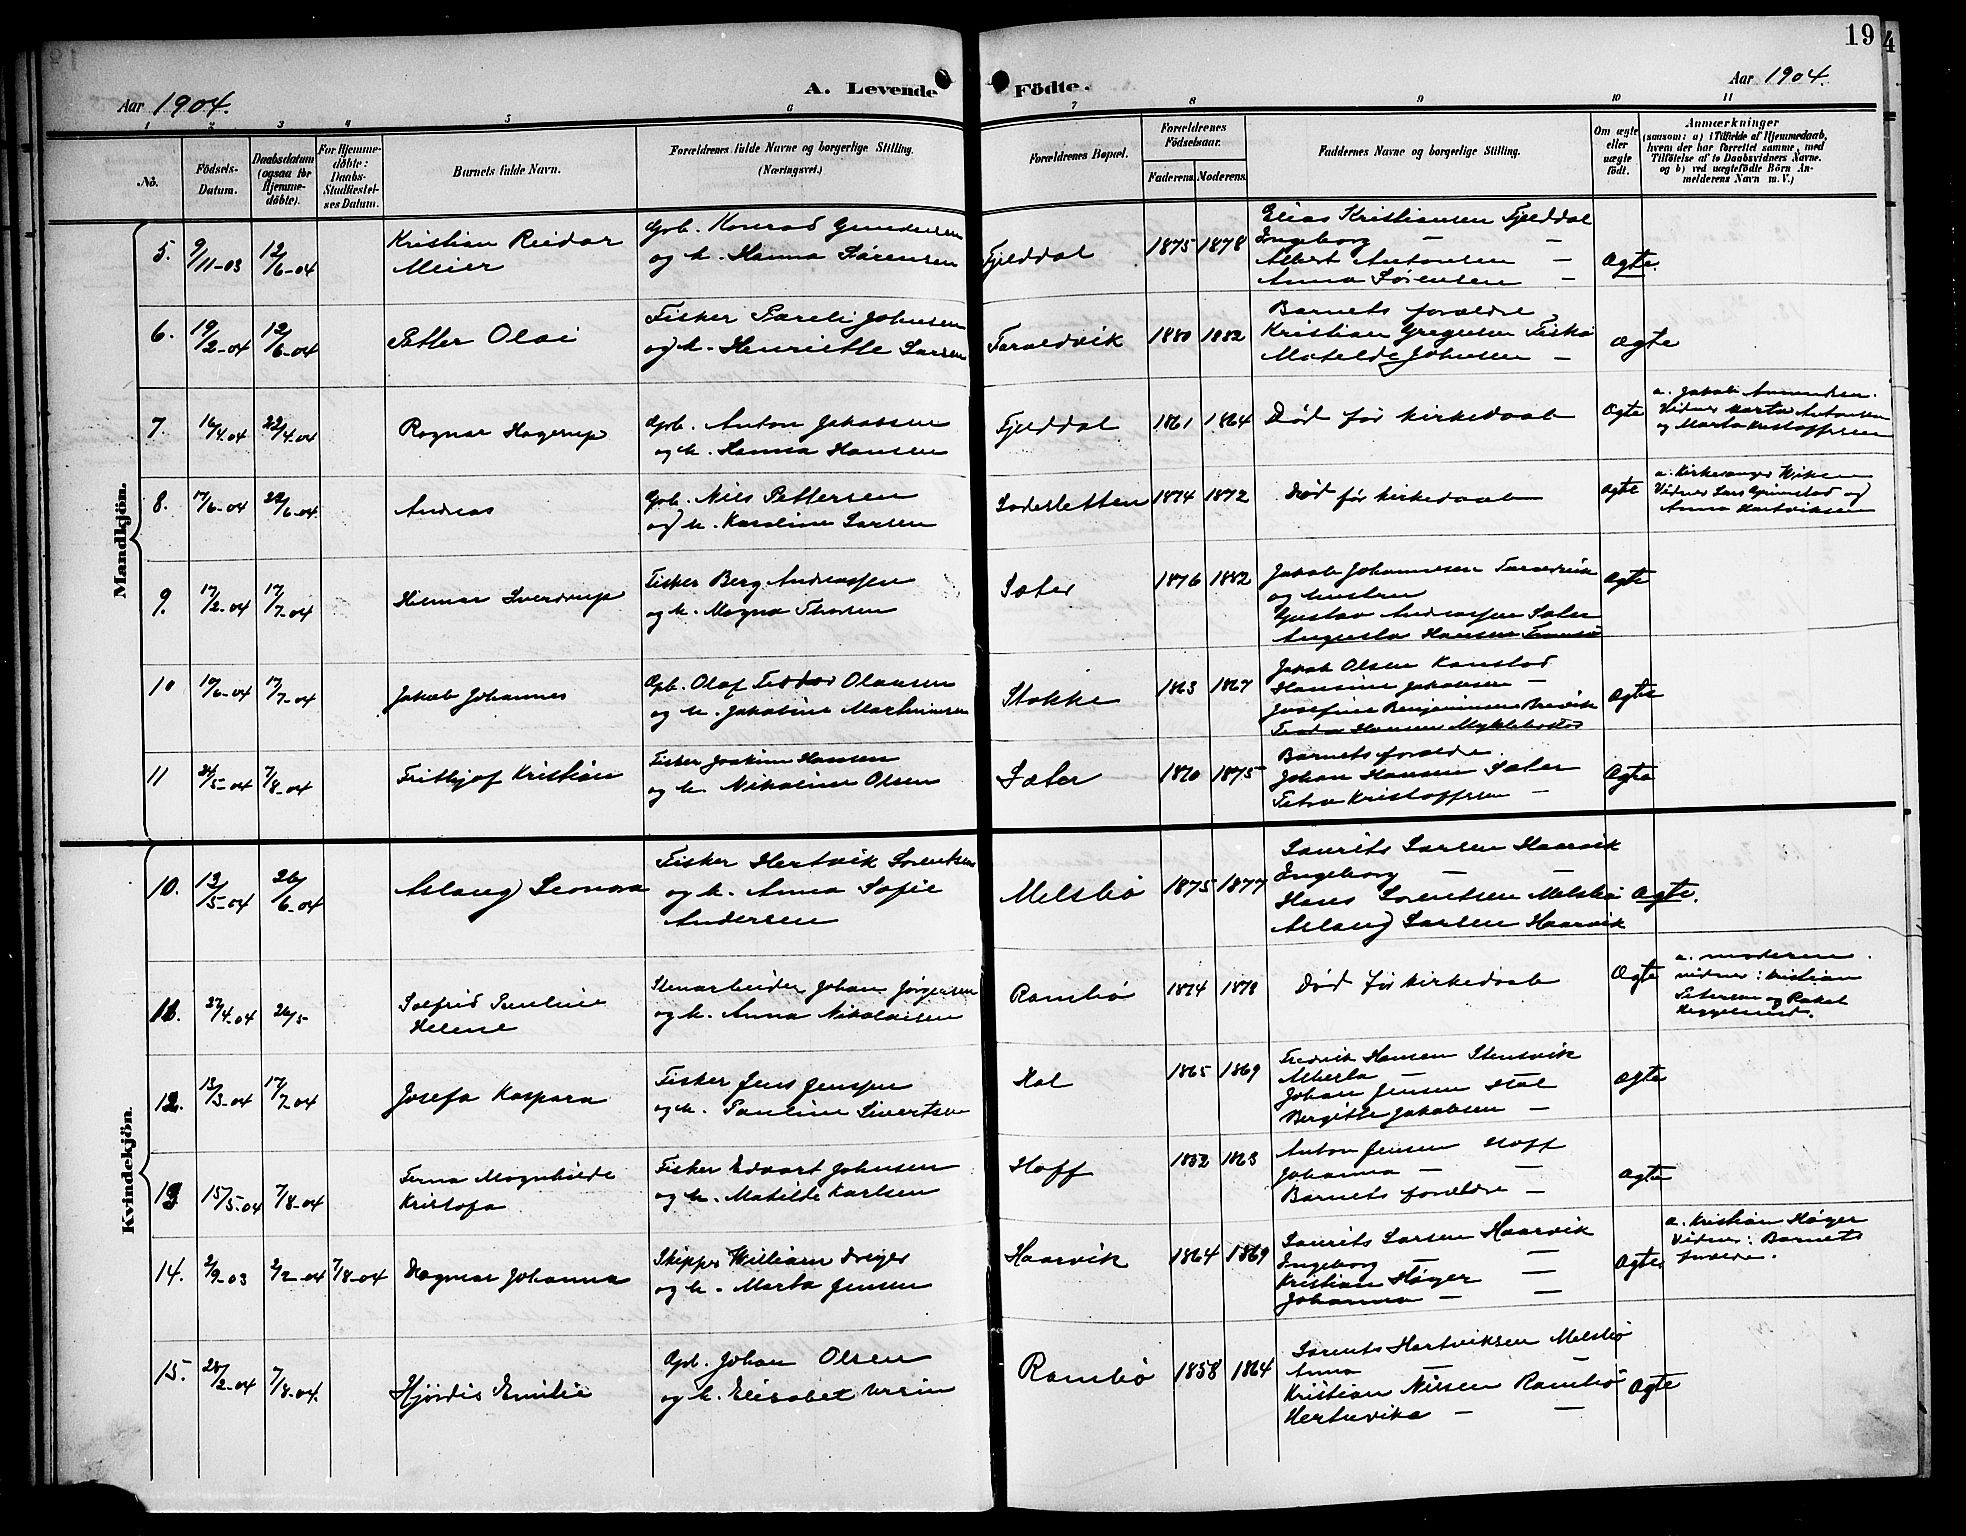 19
4
Aar 1904.
A. Levende
Födte.
Aar 1904.
1 2 3 4 5 6 7 8 9 10 11
No.
Födsels-
Datum.
Daabsdatum
(ogsaa for
Hjemme-
döbte).
For Hjemme-
döbte:
Daabs-
Stadfæstel-
ses Datum.
Barnets fulde Navn.
Forældrenes fulde Navne og borgerlige Stilling.
(Næringsvei.)
Forældrenes Bopæl.
Forældrenes
Födselsaar.
Faderens. Moderens.
Faddernes Navne og borgerlige Stilling.
Om ægte
eller
uægte
födt.
Anmærkninger
(saasom: a) i Tilfælde af Hjemmedaab,
hvem der har forrettet samme, med
Tilföielse af to Daabsvidners Navne.
og b) ved uægtefödte Börn An-
melderens Navn m. V.)
Mandkjön.
5. 9/11-03 12/6-04
Kristian Reidar
Meier
Gpb. Konrad Gundersen
og h. Hanna Sørensen
Fjelddal 1875 1878
Elias Kristiansen Fjelddal
Ingeborg — —
Albert Antonsen —
Anna Sørensen —
Ægte.
6. 19/2-04 12/6-04
Petter Olai
Fisker Pareli Johnsen
og h. Henriette Larsen
Taraldvik 1880 1882
Barnets forældre
Kristian Gregusen
Matelde Johnsen —
Ægte
7. 16/4.04 22/4.04
Ragnar Hagerup
Gpb. Anton Jakobsen
og h. Hanna Hansen
Fjelddal 1861 1864
Død før kirkedaab
Ægte
a. Jakob
Vidner Marta Antonsen
og Marta Kristoffersen
8. 17/6-04 22/6-04
Andreas
Gpb. Nils Pettersen
og h. Karoline Larsen
Ladesletten 1874 1872
Død før kirkedaab
Ægte
a. Kirkesanger Wiksen
Vidner Lars Grimstad og
Anna Hartviksen
9. 17/2-04 17/7-04
Hilmar Sverdrup
Fisker Berg Andreassen
og h. Magna Thorsen
Sæter 1876 1882
Jakob Johannesen Taraldvik
og hustru
Gustav Andreassen Sæter
Augusta Hansen Tromsø
Ægte
10 17/6-04 17/7-04
Jakob Johannes
Gpb. Olaf Teodor Olausen
og h. Jakobine Martinusen
Stokke 1863 1867
Jakob Olsen Kanstad
Hansine Jakobsen —
Josefine Benjaminsen Breivik
Hansen Myklebostad
Ægte
11 24/5-04 7/8-04
Frithjof Kristian
Fisker Joakim Hansen
og h. Nikoline Olsen
Sæter 1870 1875
Barnets forældre.
Johan Hansen Sæter
Petra Kristoffersen —
Ægte
Kvindekjön.
10. 12/5-04 26/6-04
Aslaug Leonora
Fisker Hertvik Lorentsen
og h. Anna Sofie
Andersen
Melsbø 1875 1877
Laurits Larsen Haarvik
Ingeborg — —
Hans Lorentsen Melsbø
Aslaug Larsen Haarvik
Ægte.
11. 27/4.04 26/5
Solfrid Pauline
Helene
Stenarbeider Johan Jørgensen
og h. Anna Nikolaisen
Rambø 1874 1878
Død før kirkedaab
Ægte
a. moderen.
vidner: Kristian
Petersen og Rakel
Heggelund.
12. 13/3-04 17/7-04
Josefa Kaspara
Fisker Jens Jenssen
og h. Pauline Sivertsen
Hol 1865 1869
Fredrik Hansen Stensvik
Alberta —
Johan Jensen Hol
Bergitte Jakobsen —
Ægte
13 15/5-04 7/8-04
Magnhilde
Kristofa
Fisker Edvart Johnsen
og h. Matilde Karlsen
Hoff 1852 1863
Anton Jensen Hoff
Johanna — —
Barnets forældre —
Ægte
14. 2/9-03 2/2-04 7/8-04
Dagmar Johanna
Skipper William Dreyer
og h. Marta Jensen
Haarvik 1864 1869
Laurits Larsen Haarvik
Ingeborg — —
Kristian Høyer —
Johanna — —
Ægte
a. Kristian Høyer
Vidner: Barnets
forældre.
15. 28/2-04 7/8-04.
Hjørdis Emilie
Gpb. Johan Olsen
og h. Elisabet Ursin
Rambø 1858 1864
Lorents Hartviksen Melsbø
Anna — —
Kristian Nilsen Rambø
Hertvika — —
Ægte